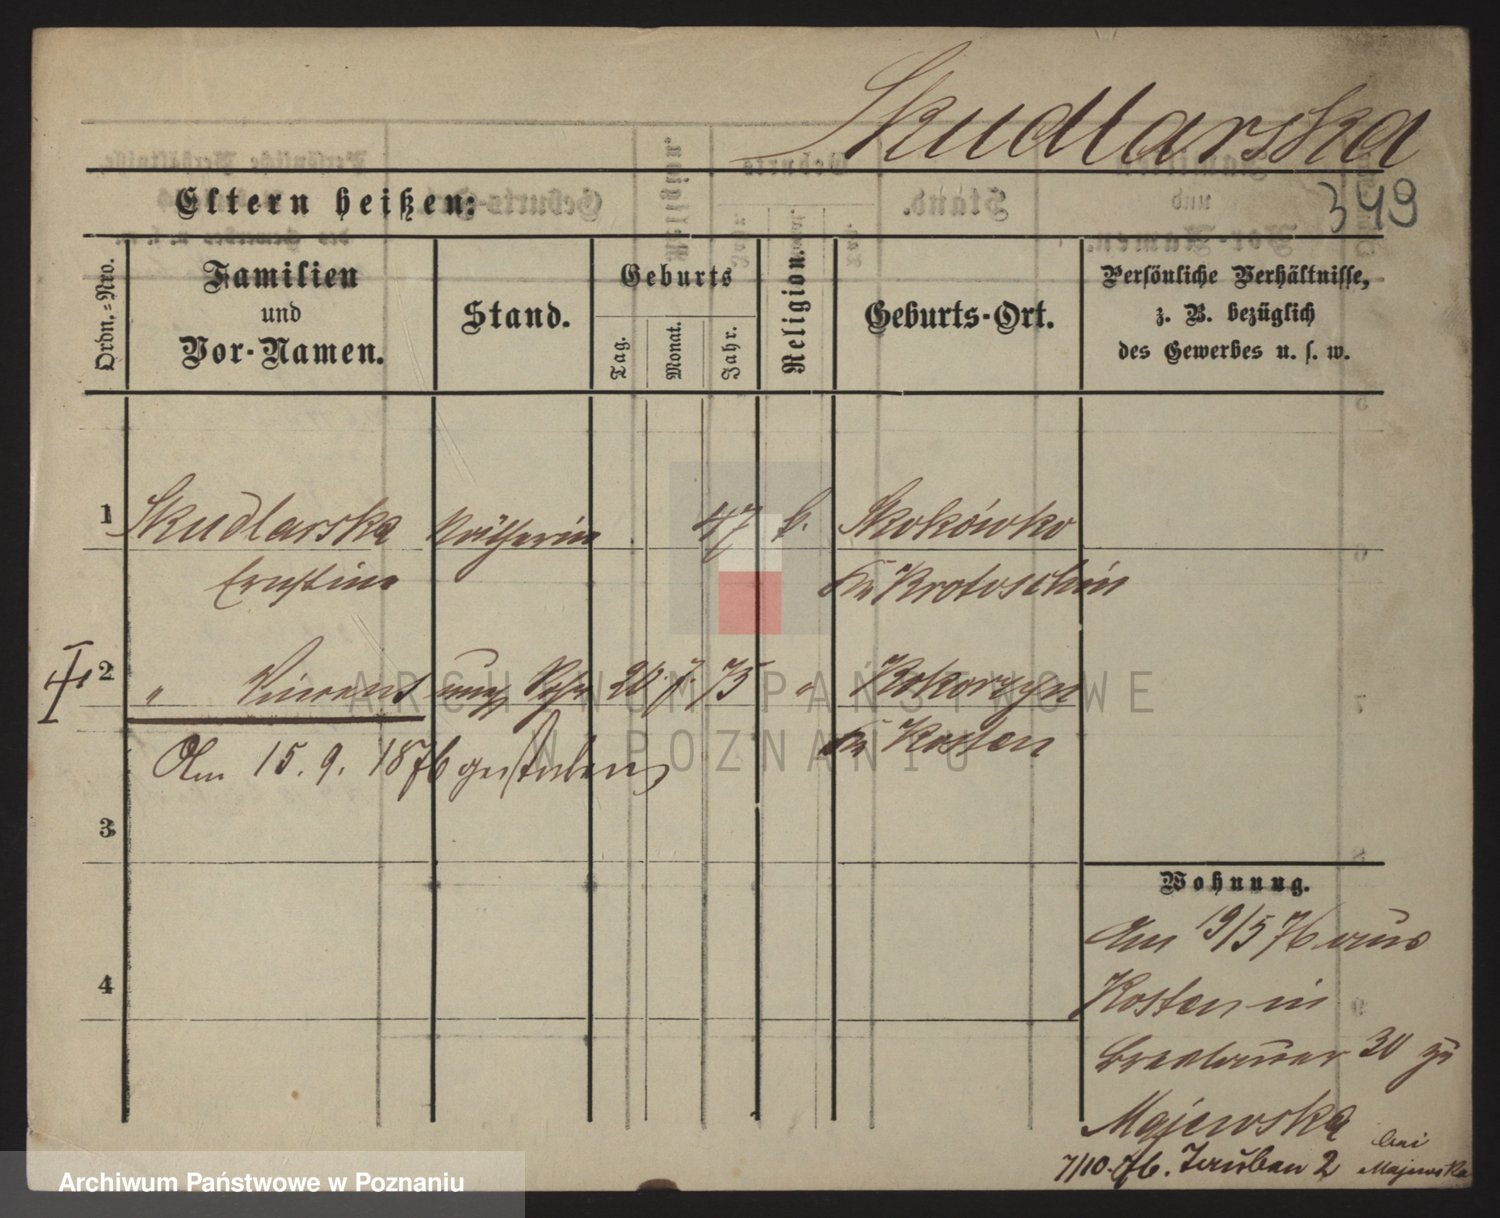 Skudlarska
349
Eltern heißen:
Ordn.=Nro.
Familien
und
Vor-Namen.
Stand.
Geburts
Tag.
Monat.
Jahr.
Religion.
Geburts-Ort.
Persönliche Verhältnisse,
z. B. bezüglich
des Gewerbes u. s. w.
1 Skudlarska Nätherin 47 k. Skokówko
Ernstine Kr Krotoschin
2 " Vincent uneh Sohn 20. 7. 75 " Kokorzyn
Kr Kosten
Am 15. 9. 1876 gestorben
3
4
Wohnung.
Am 19/5 76 aus
Kosten in
Breslauer 30 zu
Majewska
7/10. 76. Tauben 2 bei
Majewska
ARCHIWUM PAŃSTWOWE
W POZNANIU
Archiwum Państwowe w Poznaniu